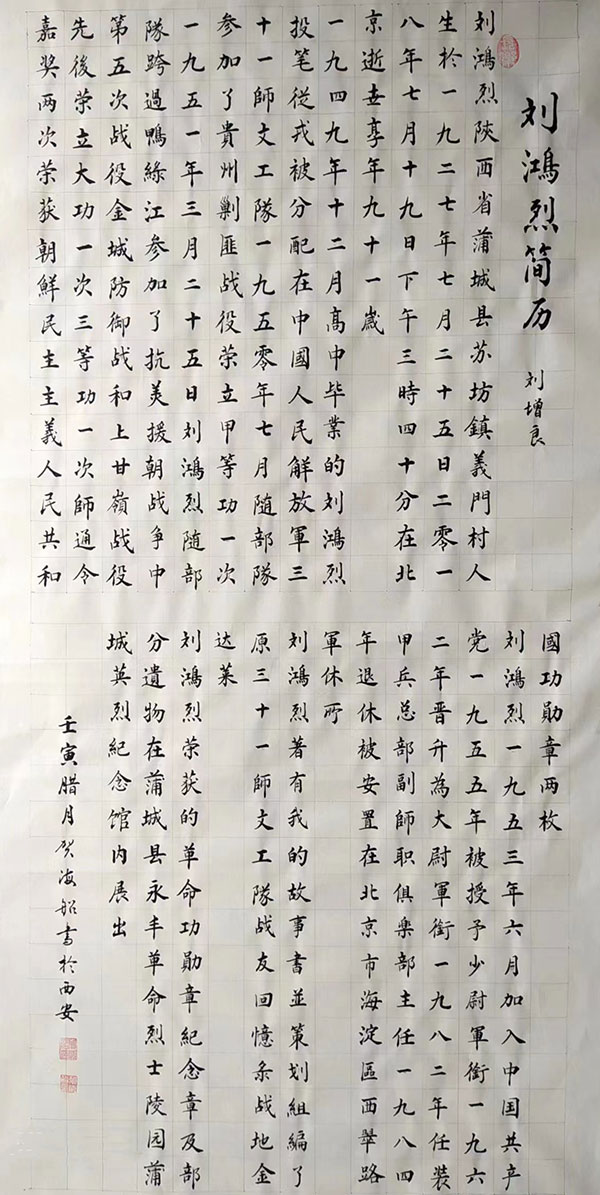 刘鸿烈简历
刘增良
刘鸿烈陕西省蒲城县苏坊鎮義門村人
生於一九二七年七月二十五日二零一
八年七月十九日下午三時四十分在北
京逝世享年九十一歲
一九四九年十二月高中毕業的刘鸿烈
投笔從戎被分配在中國人民解放軍三
十一師文工隊一九五零年七月随部隊
参加了貴州剿匪战役荣立甲等功一次
一九五一年三月二十五日刘鸿烈随部
隊跨過鴨綠江参加了抗美援朝战争中
第五次战役金城防御战和上甘嶺战役
先後荣立大功一次三等功一次師通令
嘉奖两次荣获朝鮮民主主義人民共和
國功勋章两枚
刘鸿烈一九五三年六月加入中国共产
党一九五五年被授予少尉軍銜一九六
二年晋升為大尉軍銜一九八二年任装
甲兵总部副師职俱樂部主任一九八四
年退休被安置在北京市海淀區西翠路
軍休所
刘鸿烈著有我的故事書並策划組編了
原三十一師文工隊战友回憶录战地金
达莱
刘鸿烈荣获的革命功勋章紀念章及部
分遗物在蒲城县永丰革命烈士陵园蒲
城英烈紀念馆内展出
壬寅腊月贺海船書於西安